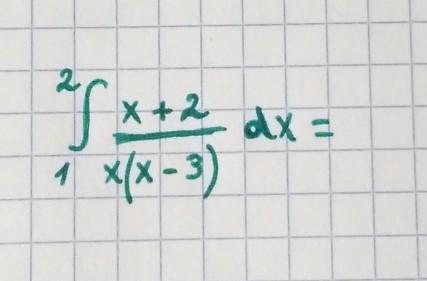 ∫₁² (x + 2)/(x(x - 3)) dx =